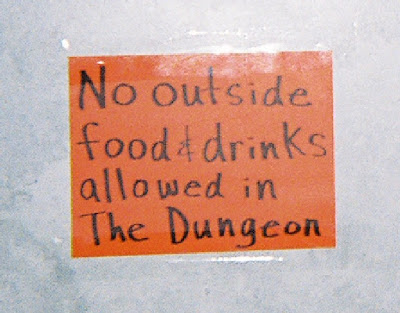 No outside
food & drinks
allowed in
The Dungeon